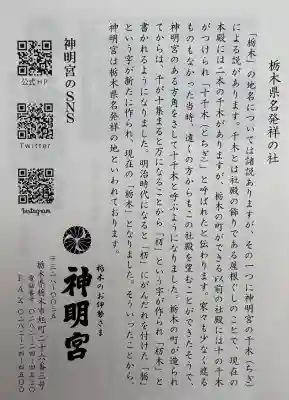 栃木県名発祥の社
「栃木」の地名については諸説ありますが、その一つに神明宮の千木（ちぎ）
による説があります。千木とは社殿の飾りである屋根ぐしのことで、現在の
本殿には二本の千木がありますが、栃木の町ができる以前の社殿には十の千木
がつけられ「十千木（とちぎ）」と呼ばれたと伝わります。家々も少なく遮る
ものもなかった当時、遠くの方からもこの社殿を望むことができたそうで、
神明宮のある方角をさして十千木と呼ぶようになりました。栃木の町が造られ
てからは、千が十集まると万になることから「杤」という字が作られ「杤木」と
書かれるようになりました。明治時代になると「杤」にがんだれを付けた「栃」
という字が新たに作られ、現在の「栃木」となりました。そういったことから、
神明宮は栃木県名発祥の地といわれております。
神明宮のSNS
公式HP
Twitter
Instagram
栃木のお伊勢さま
神明宮
栃木県栃木市旭町二十六番三号